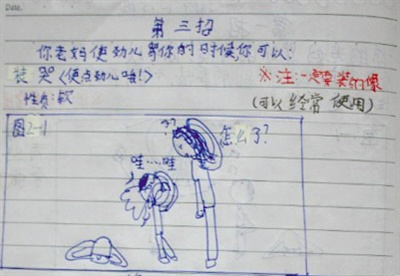 Date.
第三招
你老妈使劲儿骂你的时候,你可以:
装哭<使点劲儿哦!>
※注:一定要装的像
性质:软
(可以经常使用)
图2-1
??
怎么了?
哇...哇